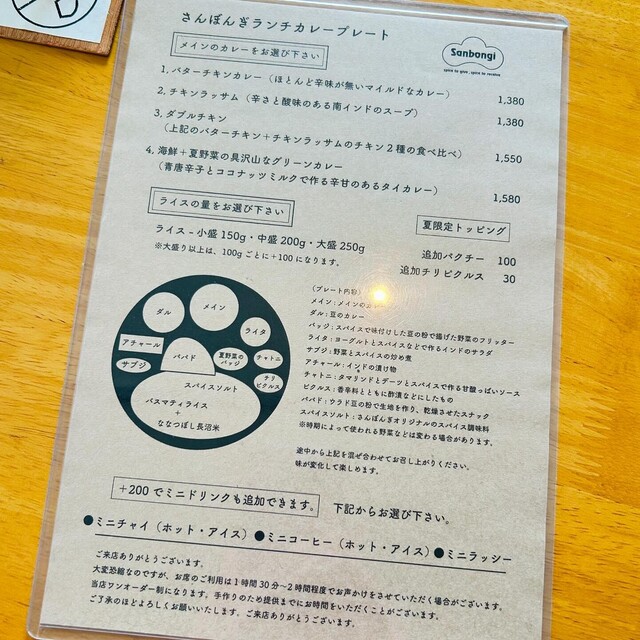 さんぼんぎランチカレープレート
Sanbongi
spice to give , spice to receive
メインのカレーをお選び下さい
1, バターチキンカレー（ほとんど辛味が無いマイルドなカレー）
1,380
2, チキンラッサム（辛さと酸味のある南インドのスープ）
1,380
3, ダブルチキン
（上記のバターチキン＋チキンラッサムのチキン２種の食べ比べ）
1,550
4, 海鮮＋夏野菜の具沢山なグリーンカレー
（青唐辛子とココナッツミルクで作る辛甘のあるタイカレー）
1,580
ライスの量をお選び下さい
ライス - 小盛 150g・中盛 200g・大盛 250g
※大盛り以上は、100g ごとに＋100 になります。
夏限定トッピング
追加パクチー 100
追加チリピクルス 30
ダル
メイン
ライタ
アチャール
サブジ
パパド
夏野菜の
バッジ
チャトニ
チリ
ピクルス
スパイスソルト
バスマティライス
＋
ななつぼし長沼米
（プレート内容）
メイン : メインの
ダル : 豆のカレー
バッジ : スパイスで味付けした豆の粉で揚げた野菜のフリッター
ライタ : ヨーグルトとスパイスなどで作るインドのサラダ
サブジ : 野菜とスパイスの炒め煮
アチャール : インドの漬け物
チャトニ : タマリンドとデーツとスパイスで作る甘酸っぱいソース
ピクルス : 香辛料とともに酢漬などにしたもの
パパド : ウラド豆の粉で生地を作り、乾燥させたスナック
スパイスソルト : さんぼんぎオリジナルのスパイス調味料
※時期によって使われる野菜などは変わる場合があります。
途中から上記を混ぜ合わせてお召し上がりください。
味が変化して楽しめます。
＋200 でミニドリンクも追加できます。
下記からお選び下さい。
●ミニチャイ（ホット・アイス）●ミニコーヒー（ホット・アイス）●ミニラッシー
ご来店ありがとうございます。
大変恐縮なのですが、お席のご利用は１時間 30 分～２時間程度でお声かけをさせていただく場合がございます。
当店ワンオーダー制になります。手作りのため提供までにお時間をいただくことがございます。
ご了承のほどよろしくお願いいたします。ご来店ありがとうございます。